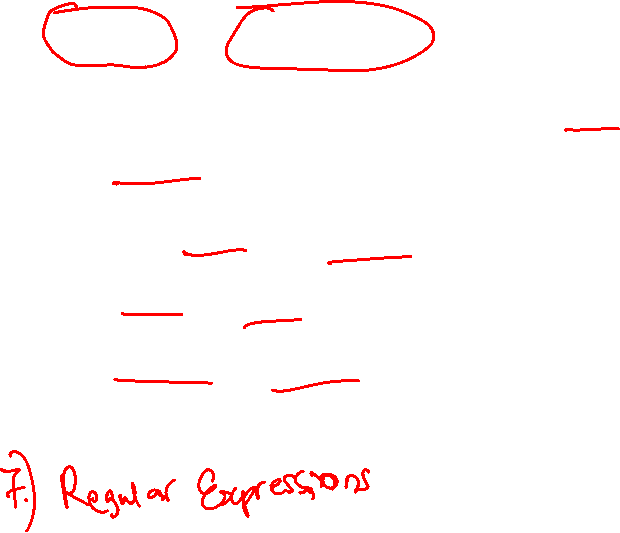 7.) Regular Expressions